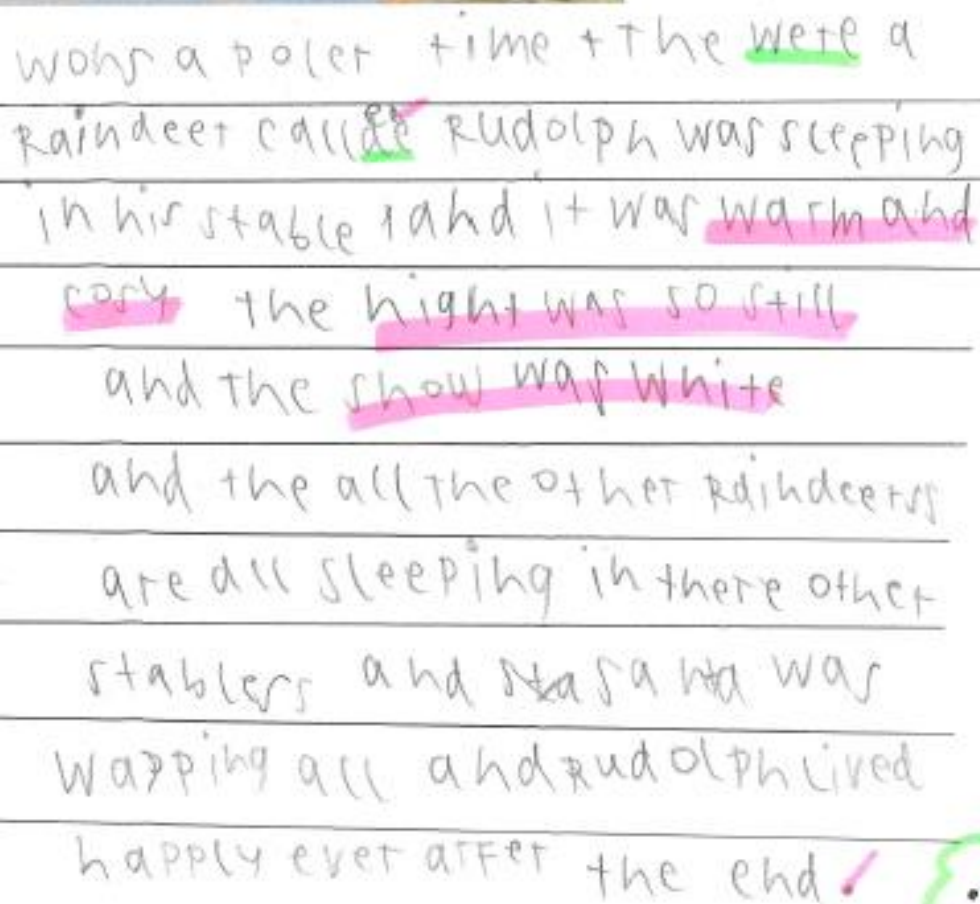 wons a poler time t the were a
Raindeer called Rudolph was sleeping
in his stable and it was warm and
cosy the night was so still
and the snow was white
and the all the other Raindeerss
are all sleeping in there other
stablers and santa was
wapping all and Rudolph lived
happly ever arfer the end!